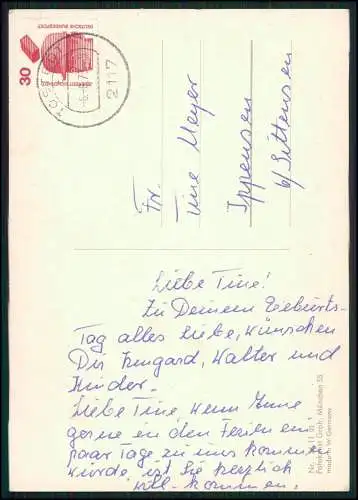 30
DEUTSCHE BUNDESPOST
2117
Fr.
Tine Meyer
Ippensen
b/ Sittensen
Liebe Tine!
Zu Deinem Geburts-
Tag alles Liebe, wünschen
Dir Irmgard, Walter und
Kinder.
Liebe Tine, wenn Anne
gerne in den Ferien ein
paar Tage zu uns kommen
würde, ist Sie herzlich
will-kommen.
Groh, München 55
made in W-Germany